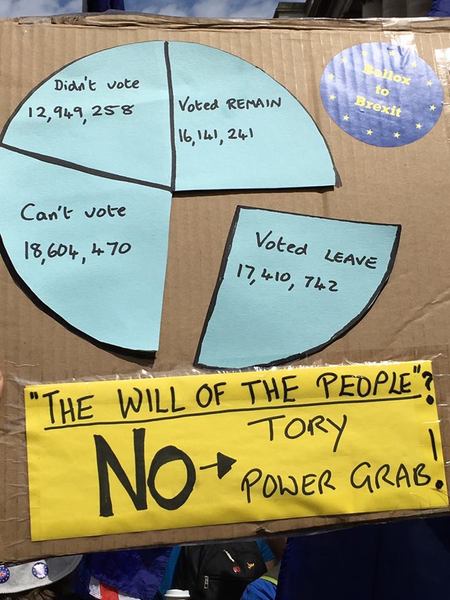 Didn't vote
12,949,258
Voted REMAIN
16,141,241
Bollox
to
Brexit
Can't vote
18,604,470
Voted LEAVE
17,410,742
"THE WILL OF THE PEOPLE"?
NO → TORY
POWER GRAB!